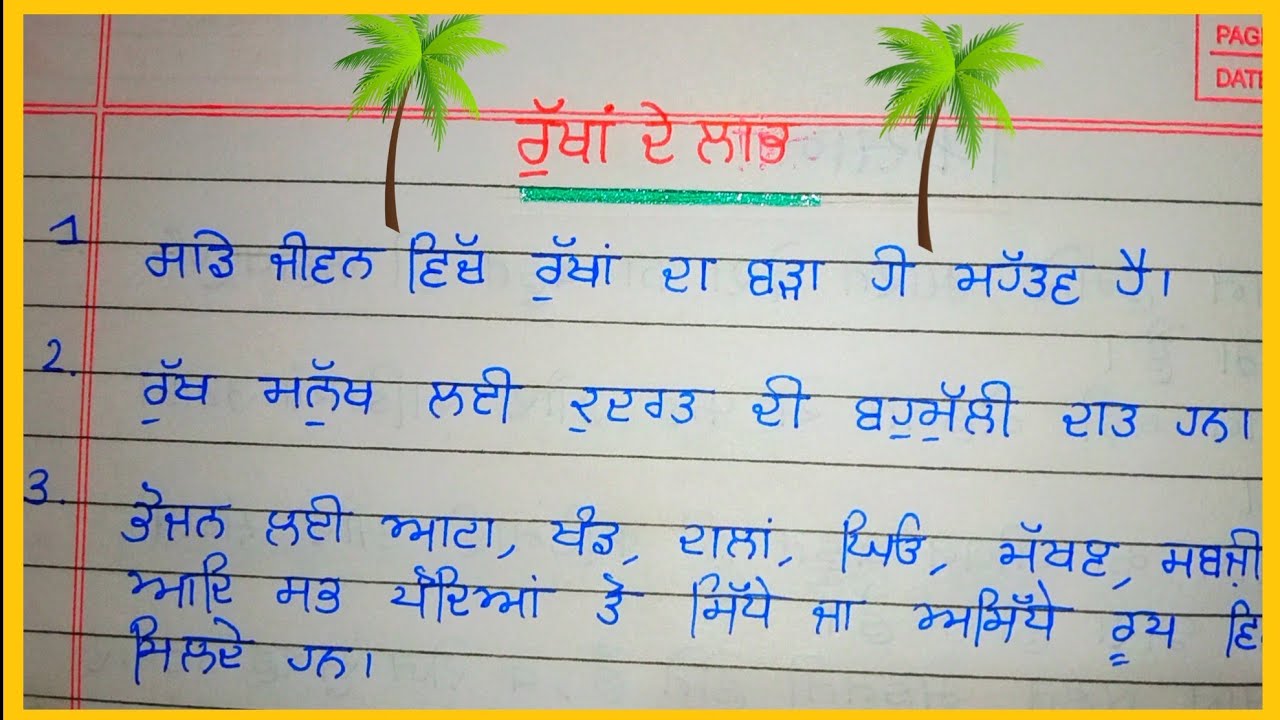 PAG
DATE
ਰੁੱਖਾਂ ਦੇ ਲਾਭ
1 ਸਾਡੇ ਜੀਵਨ ਵਿੱਚ ਰੁੱਖਾਂ ਦਾ ਬੜਾ ਹੀ ਮਹੱਤਵ ਹੈ।
2. ਰੁੱਖ ਮਨੁੱਖ ਲਈ ਕੁਦਰਤ ਦੀ ਬਹੁਮੁੱਲੀ ਦਾਤ ਹਨ।
3. ਭੋਜਨ ਲਈ ਆਟਾ, ਖੰਡ, ਦਾਲਾਂ, ਘਿਓ, ਮੱਖਣ, ਸਬਜ਼ੀ
ਆਦਿ ਸਭ ਪੌਦਿਆਂ ਤੋਂ ਸਿੱਧੇ ਜਾ ਅਸਿੱਧੇ ਰੂਪ ਵਿ
ਮਿਲਦੇ ਹਨ।